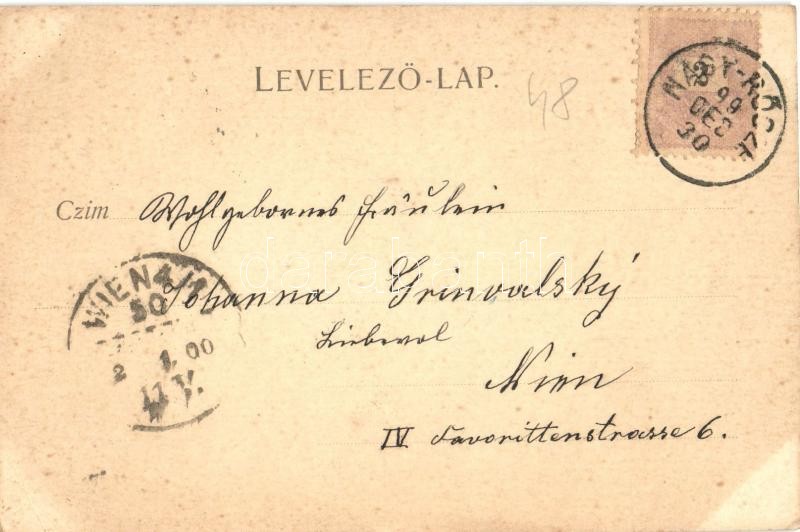 LEVELEZŐ-LAP.
48
NAGY-RŐCZE
99
DEC
30
Czim Wohlgebornes Fräulein
Johanna Grinvalský
Liebevol
Wien
IV Favorittenstrasse 6.
WIEN 4/1
50
2 1 00
11.V.
darabanth